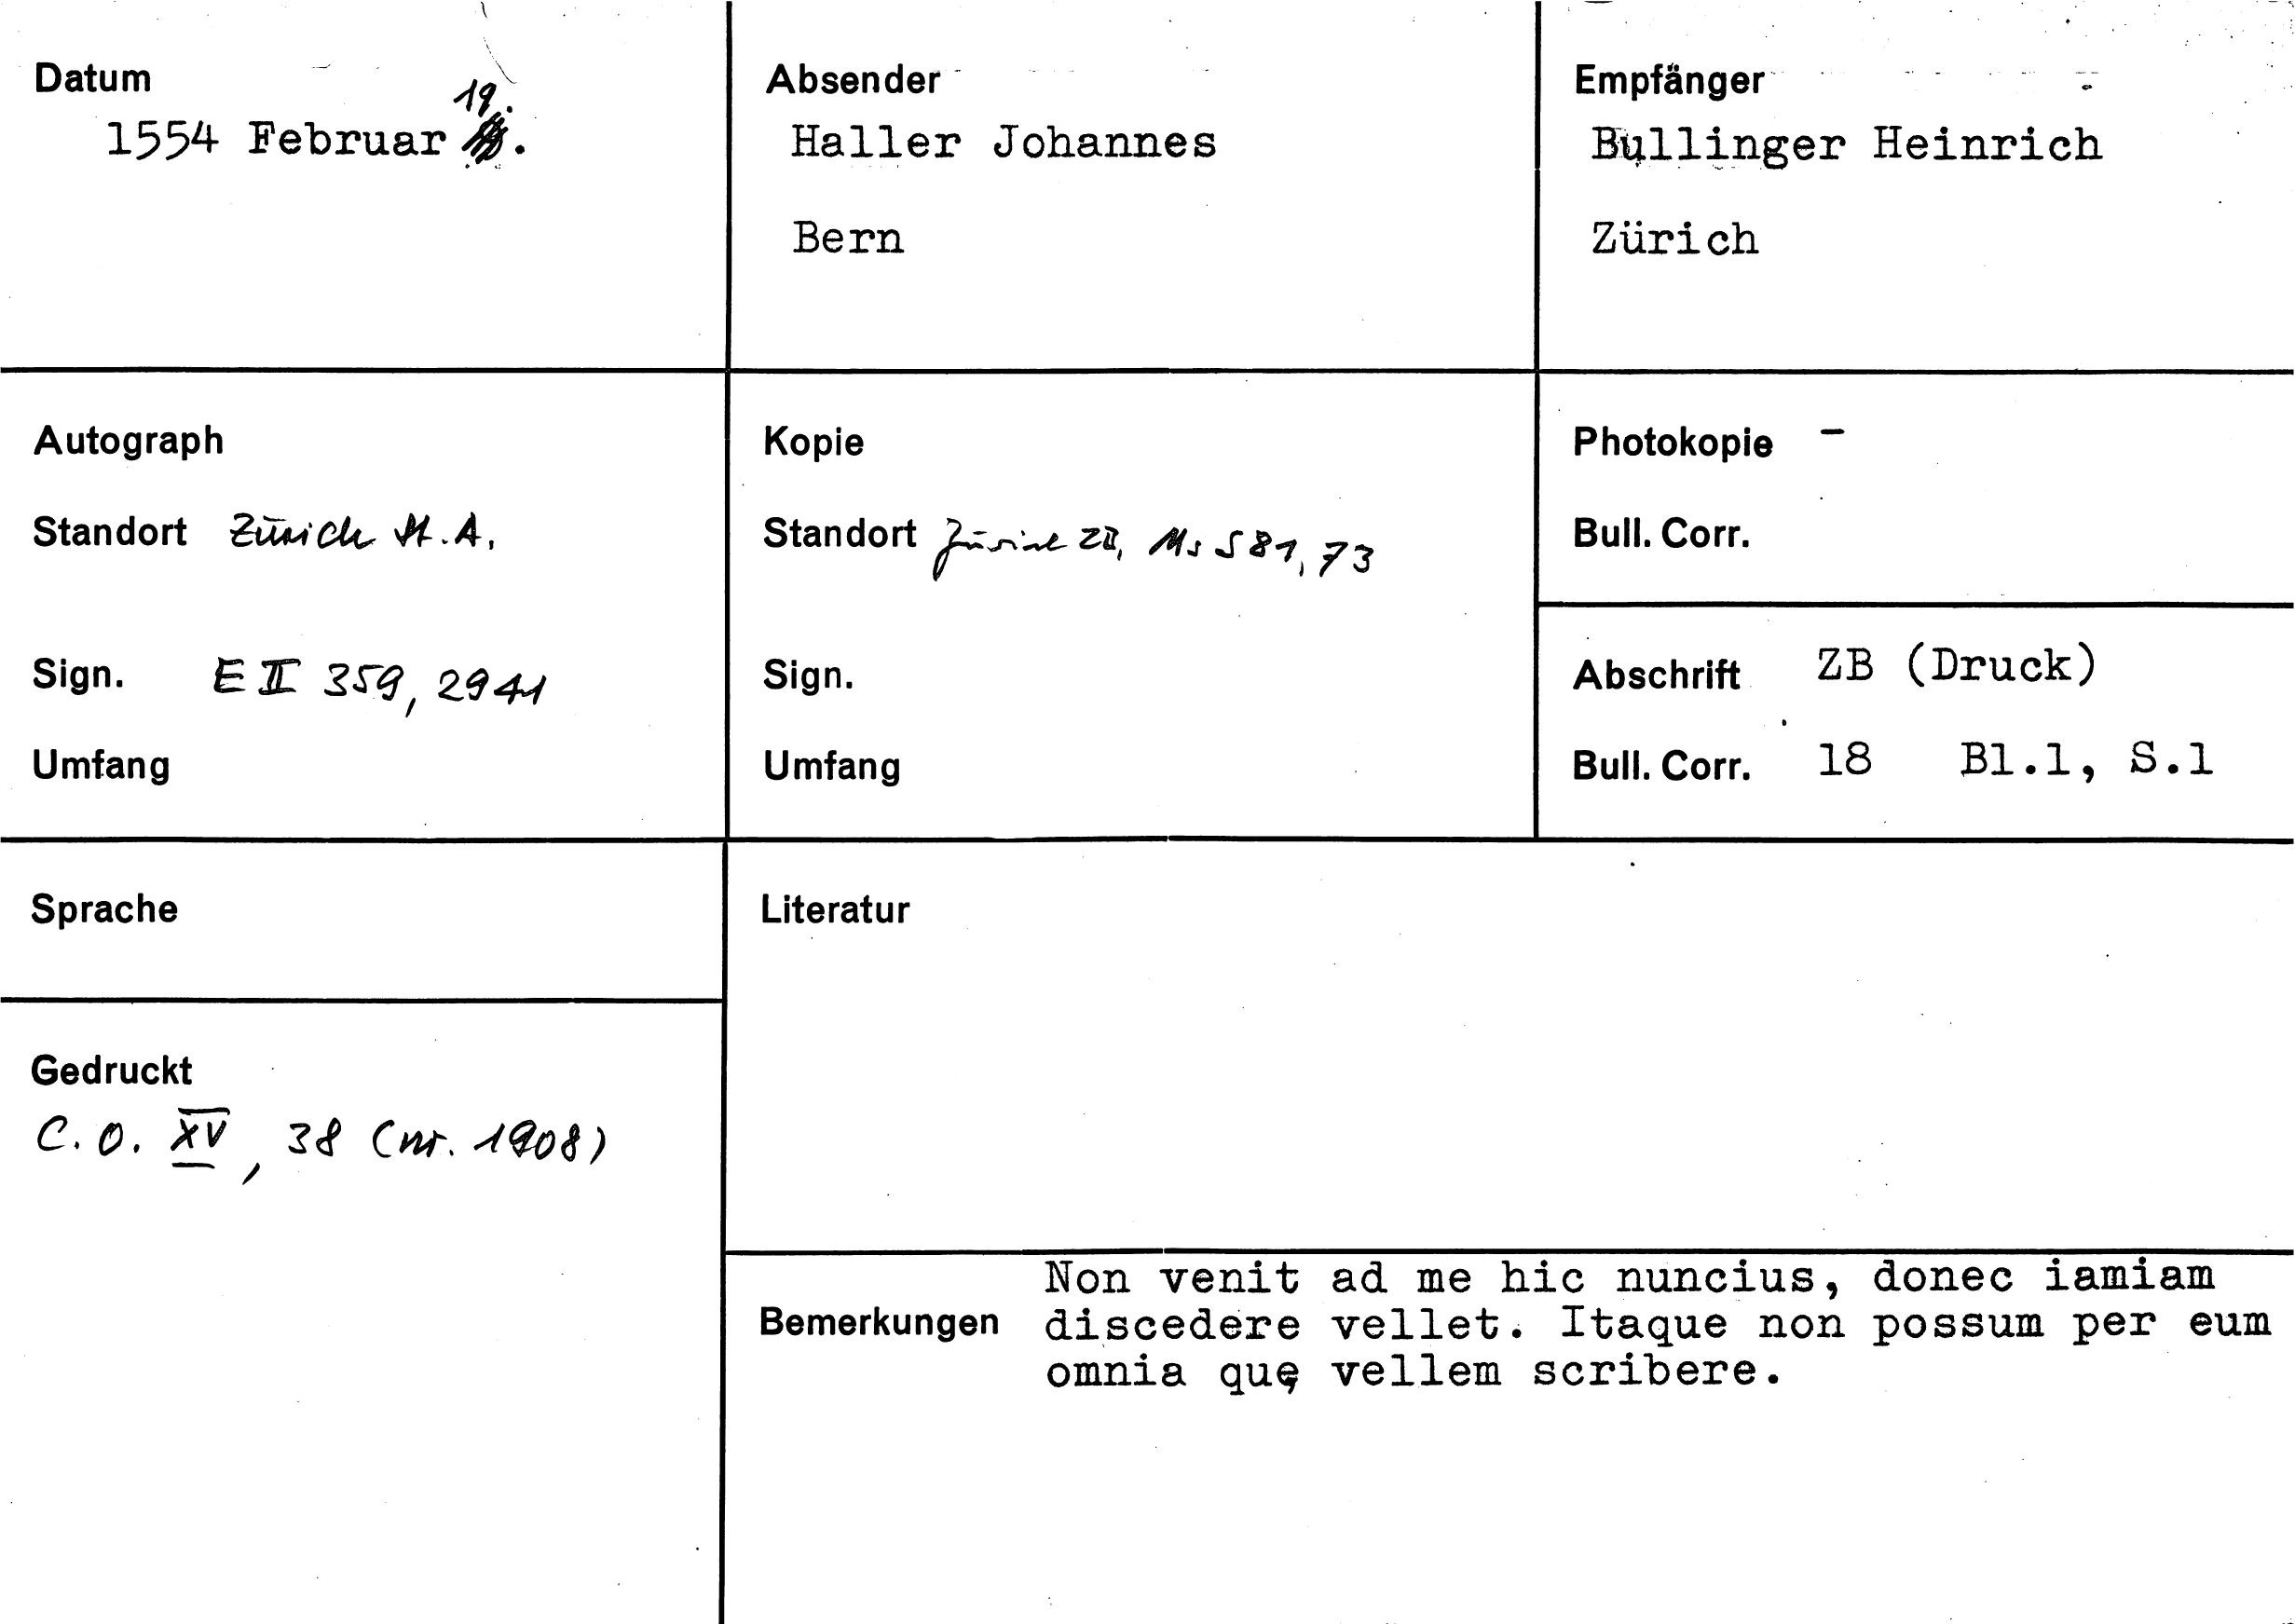 Datum
19.
1554 Februar .
Absender
Haller Johannes
Bern
Empfänger
Bullinger Heinrich
Zürich
Autograph
Standort Zürich St.A.
Sign. E II 359, 2941
Umfang
Kopie
Standort Zürich ZB, Ms S 81, 73
Sign.
Umfang
Photokopie -
Bull. Corr.
Abschrift ZB (Druck)
Bull. Corr. 18 Bl.1, S.1
Sprache
Literatur
Gedruckt
C. O. XV, 38 (nr. 1908)
Bemerkungen
Non venit ad me hic nuncius, donec iamiam
discedere vellet. Itaque non possum per eum
omnia quę vellem scribere.